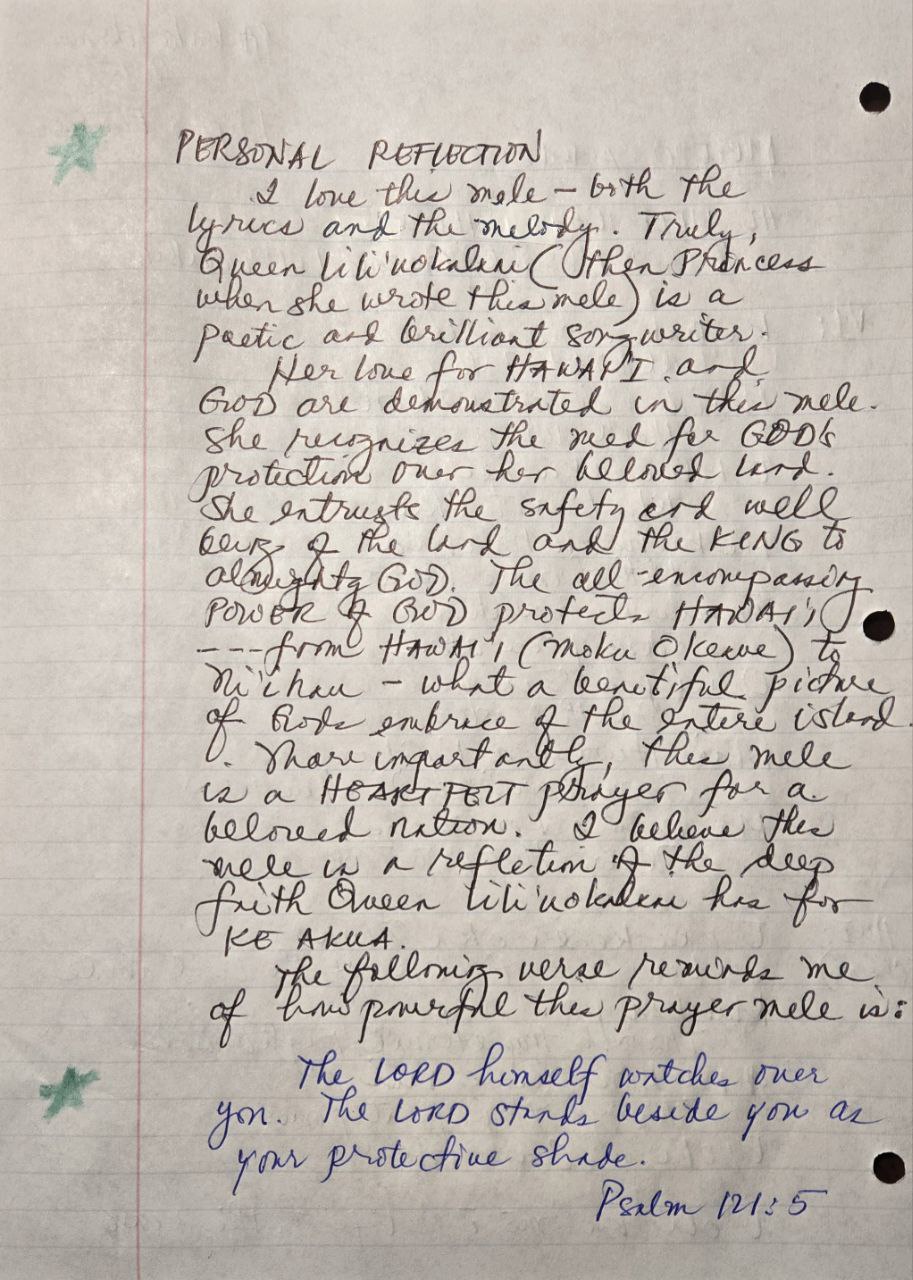 PERSONAL REFLECTION
I love this mele – both the
lyrics and the melody. Truly,
Queen Lili'uokalani (then Princess
when she wrote this mele) is a
poetic and brilliant songwriter.
Her love for HAWAI'I and
GOD are demonstrated in this mele.
She recognizes the need for GOD's
protection over her beloved land.
She entrusts the safety and well
being of the land and the KING to
almighty GOD. The all-encompassing
POWER of GOD protects HAWAI'i
---from HAWAI'i (Moku O Keawe) to
Ni'ihau – what a beautiful picture
of Gods embrace of the entire island.
More importantly, this mele
is a HEARTFELT prayer for a
beloved nation. I believe this
mele is a refletion of the deep
faith Queen Lili'uokalani has for
KE AKUA.
The following verse reminds me
of how powerful this prayer mele is:
The LORD himself watches over
you. The LORD stands beside you as
your protective shade.
Psalm 121:5